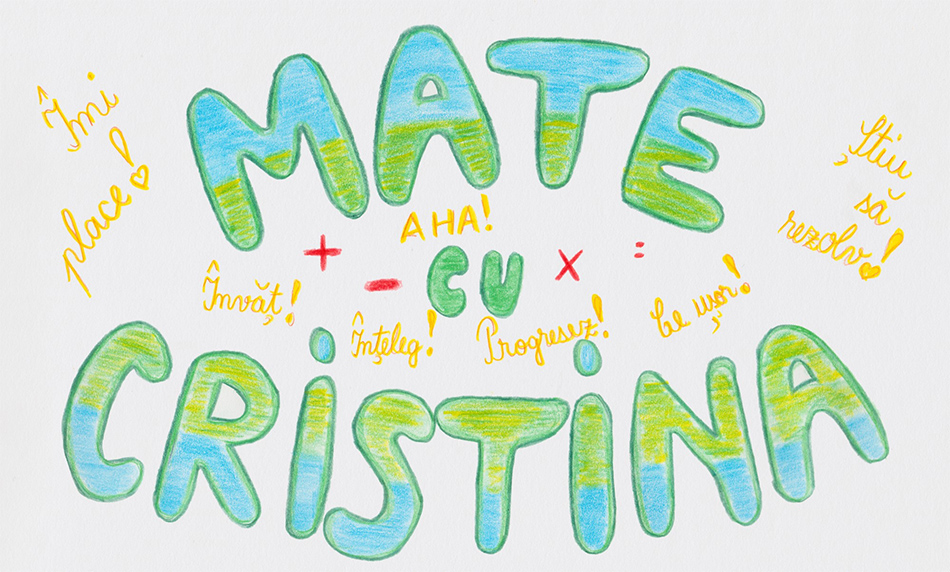 MATE
Îmi
place!
Știu
să
rezolv!
AHA!
+ - CU x :
Învăț!
Înțeleg!
Progresez!
Ce ușor!
CRiSTiNA